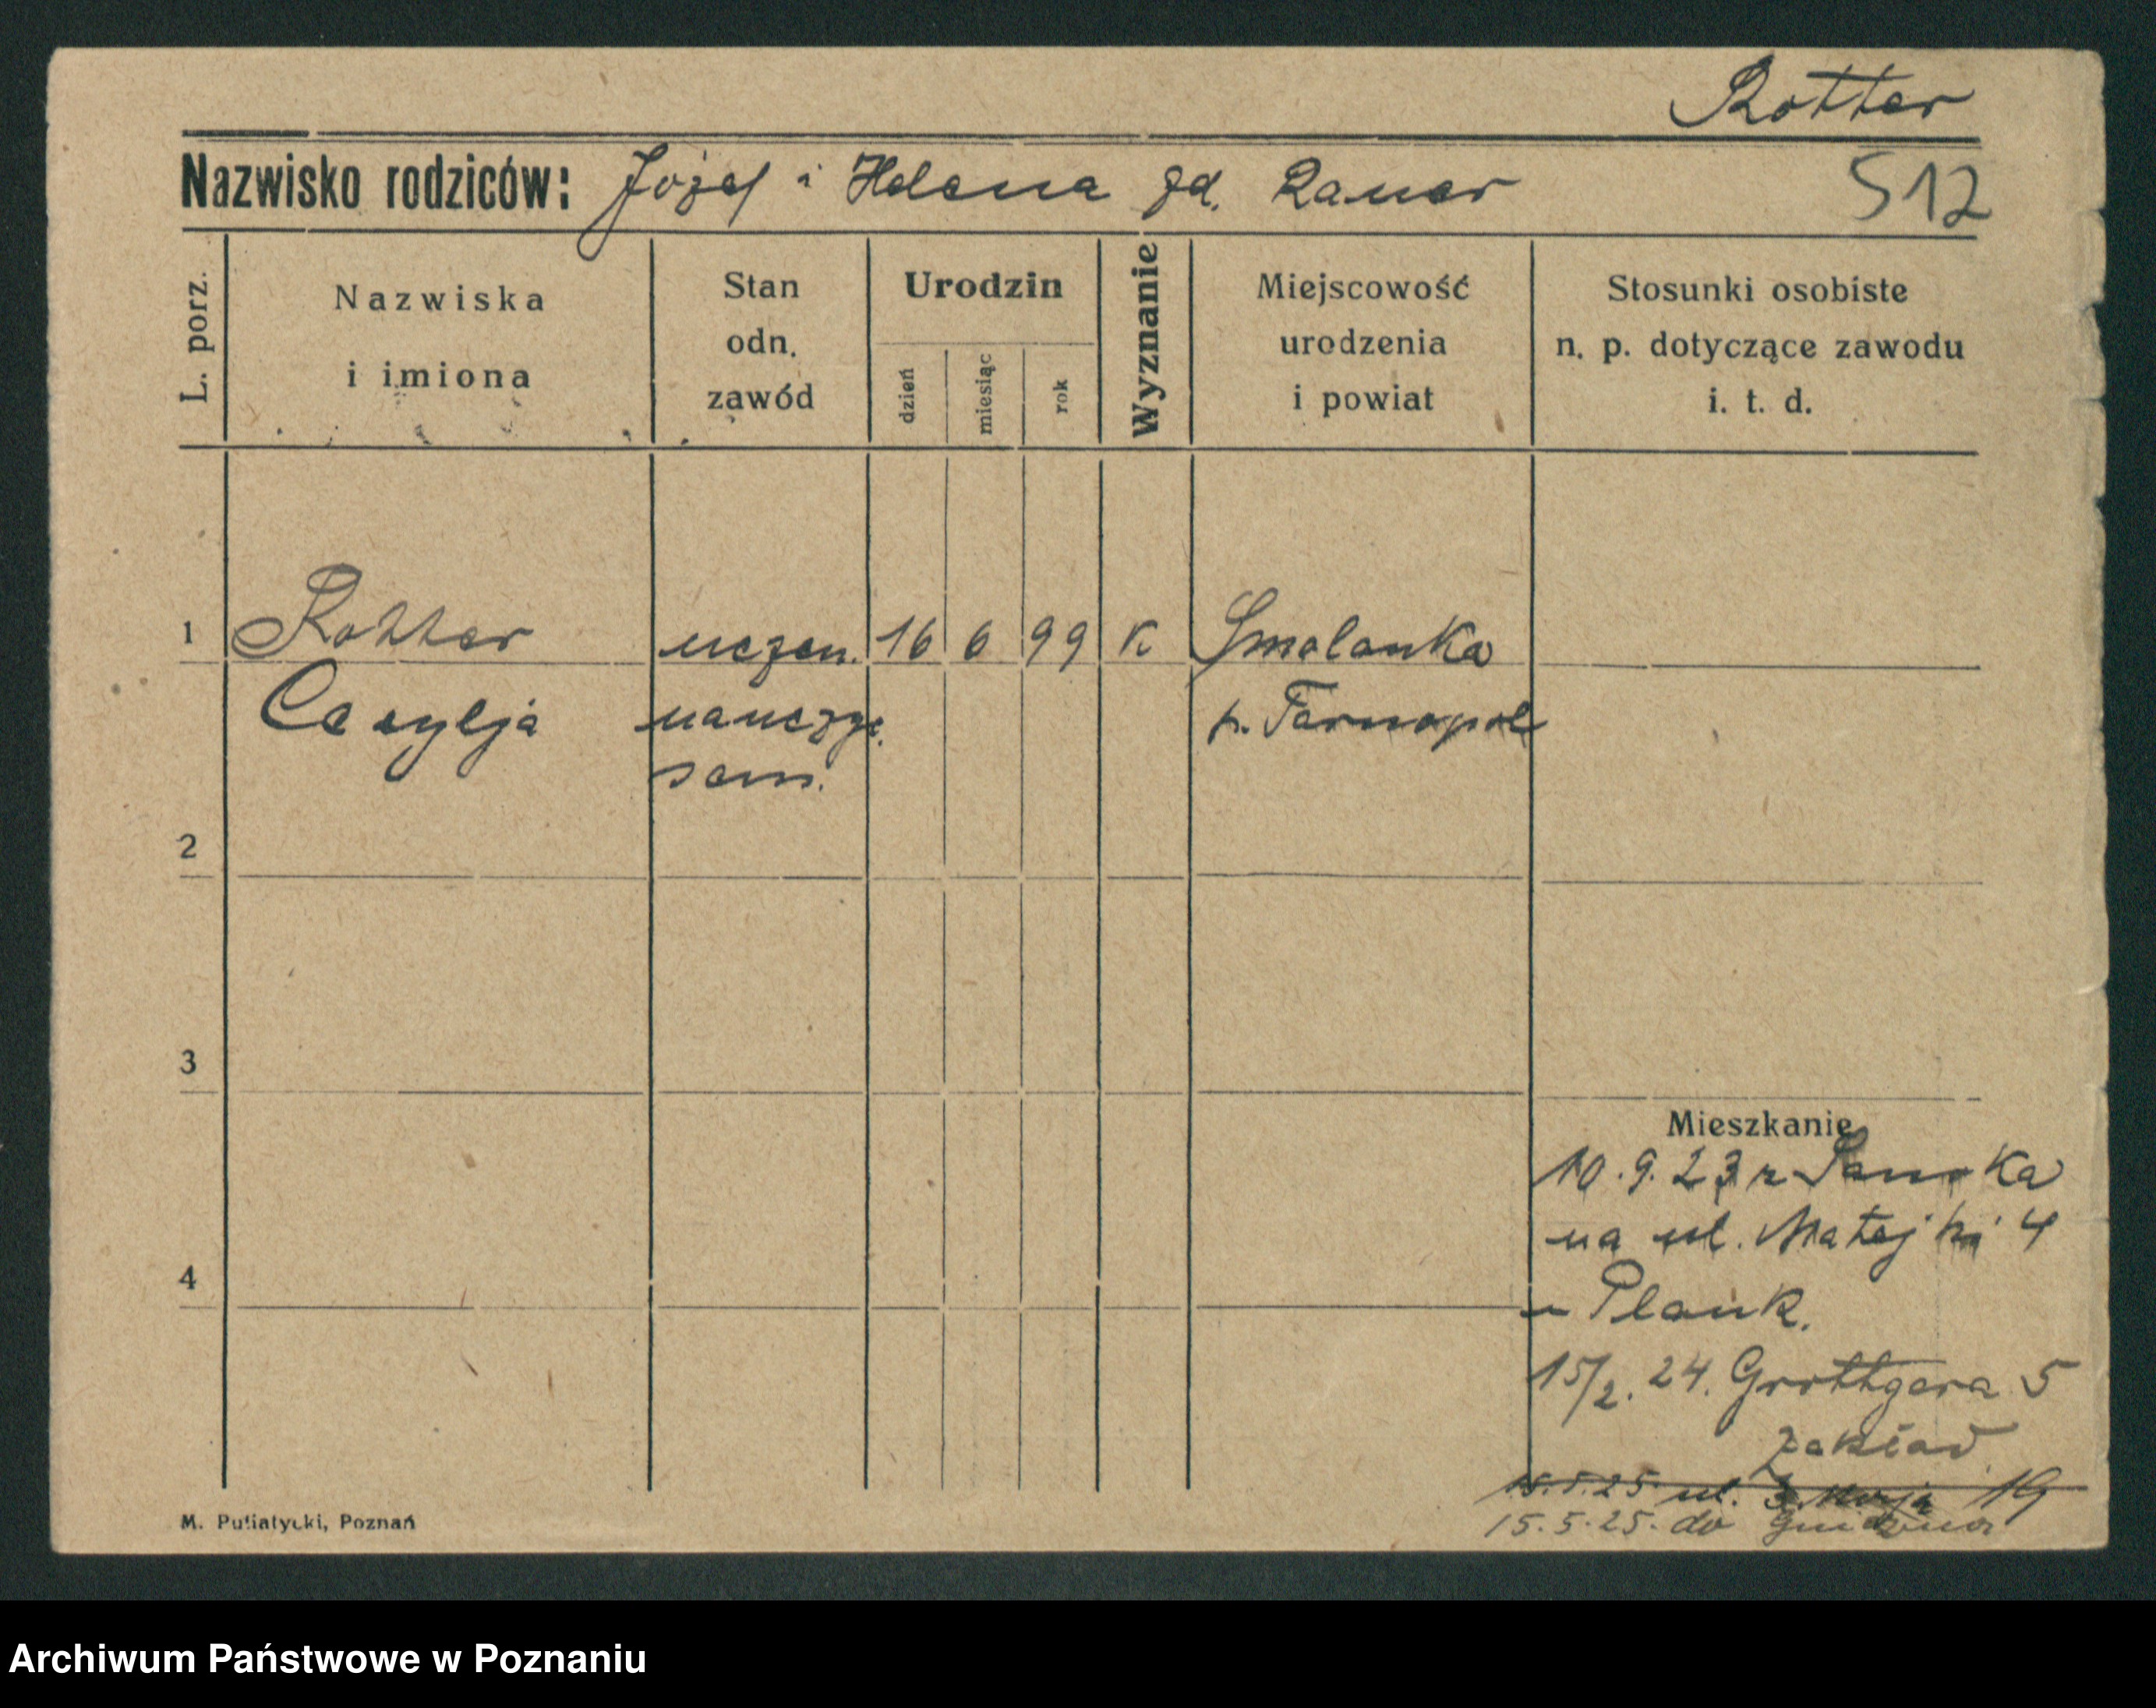 Rotter
Nazwisko rodziców: Józef i Helena zd. Rauer
512
L. porz.
Nazwiska
i imiona
Stan
odn.
zawód
Urodzin
dzień
miesiąc
rok
Wyznanie
Miejscowość
urodzenia
i powiat
Stosunki osobiste
n. p. dotyczące zawodu
i. t. d.
1
Rotter
uczen.
16
6
99
K
Smolanka
Cecylja
nauczyc.
p. Tarnopol
sem.
2
3
4
Mieszkanie
10.9.23
na ul. Matejki 4
u Plank.
15/2. 24. Grottgera 5
zakład
15.5.25 ul. 3. Maja 19
15.5.25. do Gniezna
M. Putiatycki, Poznań
Archiwum Państwowe w Poznaniu